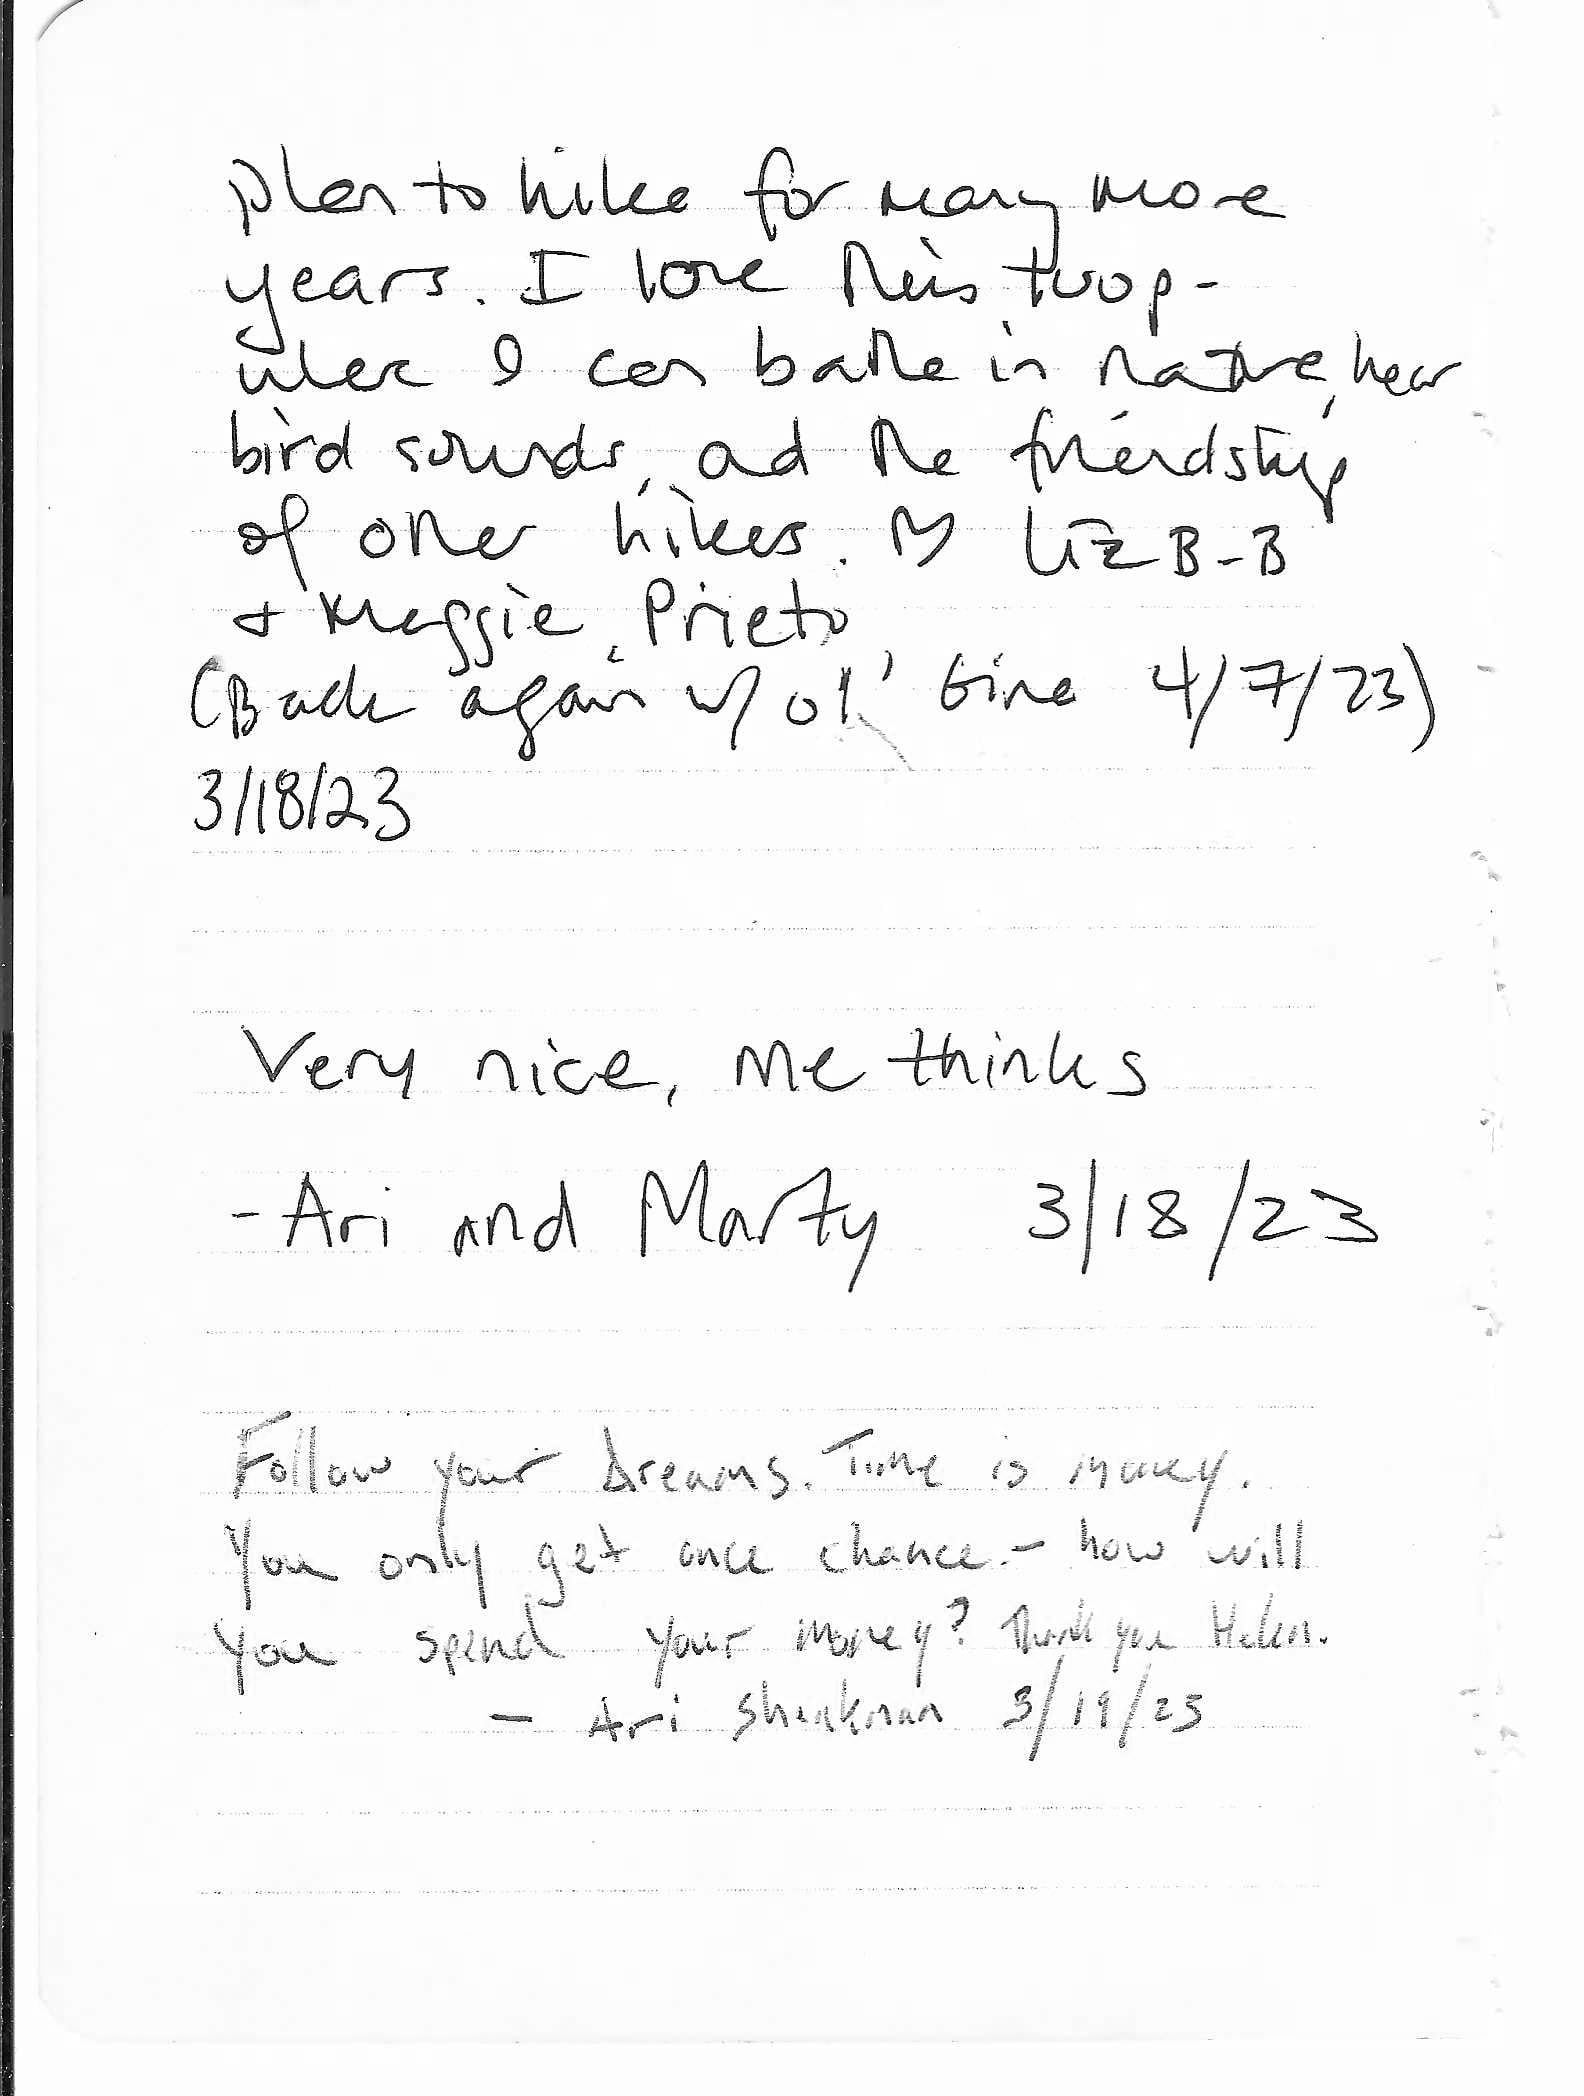 plan to hike for many more
years. I love this troop -
where I can bathe in nature, hear
bird sounds, and the friendship
of other hikers. ♡ Liz B-B
+ Maggie, Prieto
(Back again w/ ol' Gina 4/7/23)
3/18/23
Very nice, me thinks
- Ari and Marty 3/18/23
Follow your dreams. Time is money.
You only get once chance - how will
you spend your money? Thank you Helen.
- Ari Shenkman 3/19/23